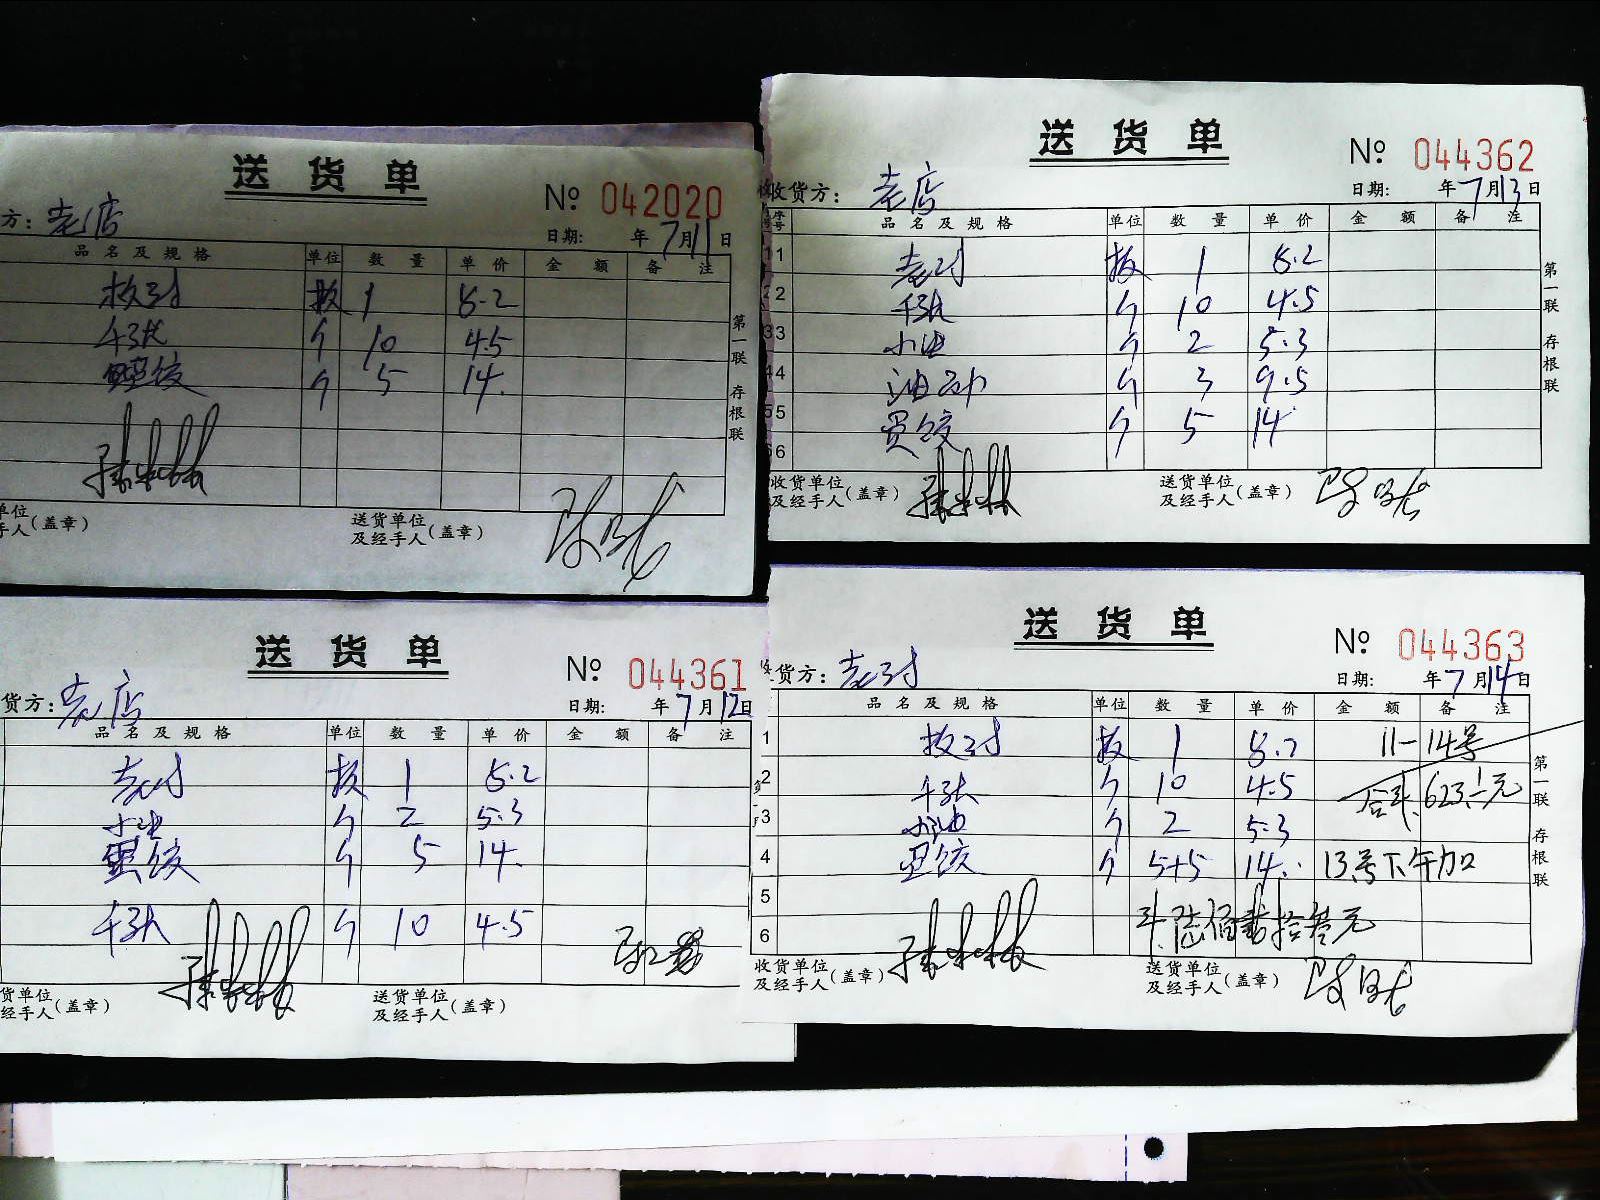 送货单
No 042020
方：老店
日期： 年7月11日
品名及规格 单位 数量 单价 金额 备注
板 1 8.2
千张 个 10 4.5
蛋饺 个 5 14.
第一联 存根联
单位
手人（盖章）
送货单位
及经手人（盖章）
送货单
No 044362
收货方：老店
日期： 年7月13日
序号 品名及规格 单位 数量 单价 金额 备注
1 板 1 8.2
2 千张 个 10 4.5
3 小油 个 2 5.3
4 个 3 9.5
5 蛋饺 个 5 14
6
第一联 存根联
收货单位
及经手人（盖章）
送货单位
及经手人（盖章）
送货单
No 044361
货方：老店
日期： 年7月12日
品名及规格 单位 数量 单价 金额 备注
板 1 8.2
小油 个 2 5.3
蛋饺 个 5 14.
千张 个 10 4.5
货单位
经手人（盖章）
送货单位
及经手人（盖章）
送货单
No 044363
货方：
日期： 年7月14日
品名及规格 单位 数量 单价 金额 备注
1 板 1 8.2 11-14号
2 千张 个 10 4.5 合计：623.6元
3 小油 个 2 5.3
4 蛋饺 个 5+5 14. 13号下午加口
5
6 计：陆佰贰拾叁元
第一联 存根联
收货单位
及经手人（盖章）
送货单位
及经手人（盖章）